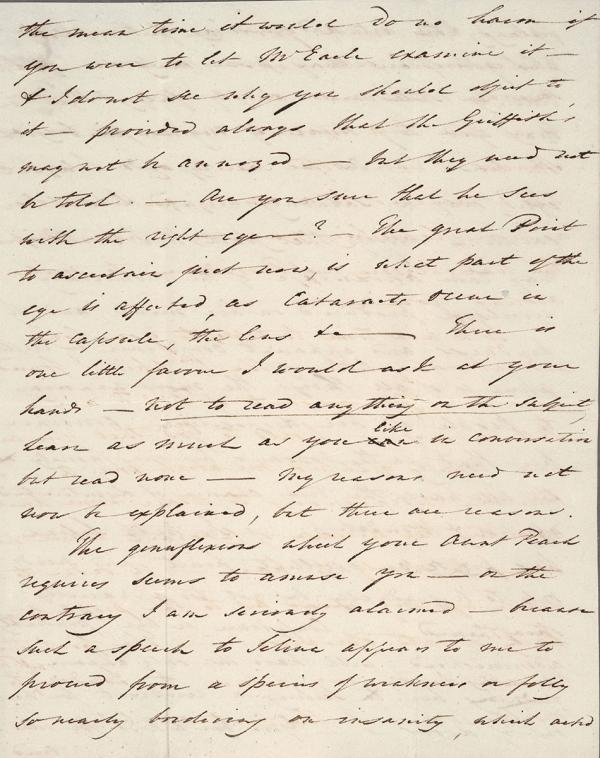 the mean time it would do no harm if
you were to let Mr Earle examine it —
& I do not see why you should object to
it — provided always that the Griffith's
may not be annoyed — but they need not
be told. — Are you sure that he sees
with the right eye — ? — The great Point
to ascertain just now, is what part of the
eye is affected, as Cataracts occur in
the capsule, the lens &c — There is
one little favour I would ask at your
hands — not to read anything on the subject,
hear as much as you like in conversation
but read none — My reasons need not
now be explained, but there are reasons.
The genuflexions which your Aunt Peach
requires seems to amuse you — on the
contrary I am seriously alarmed — because
such a speech to Selina appears to me to
proceed from a species of weakness or folly
so nearly bordering on insanity, which